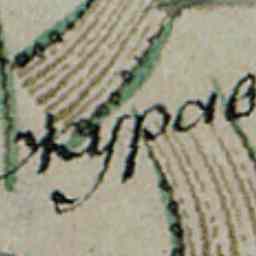 журав